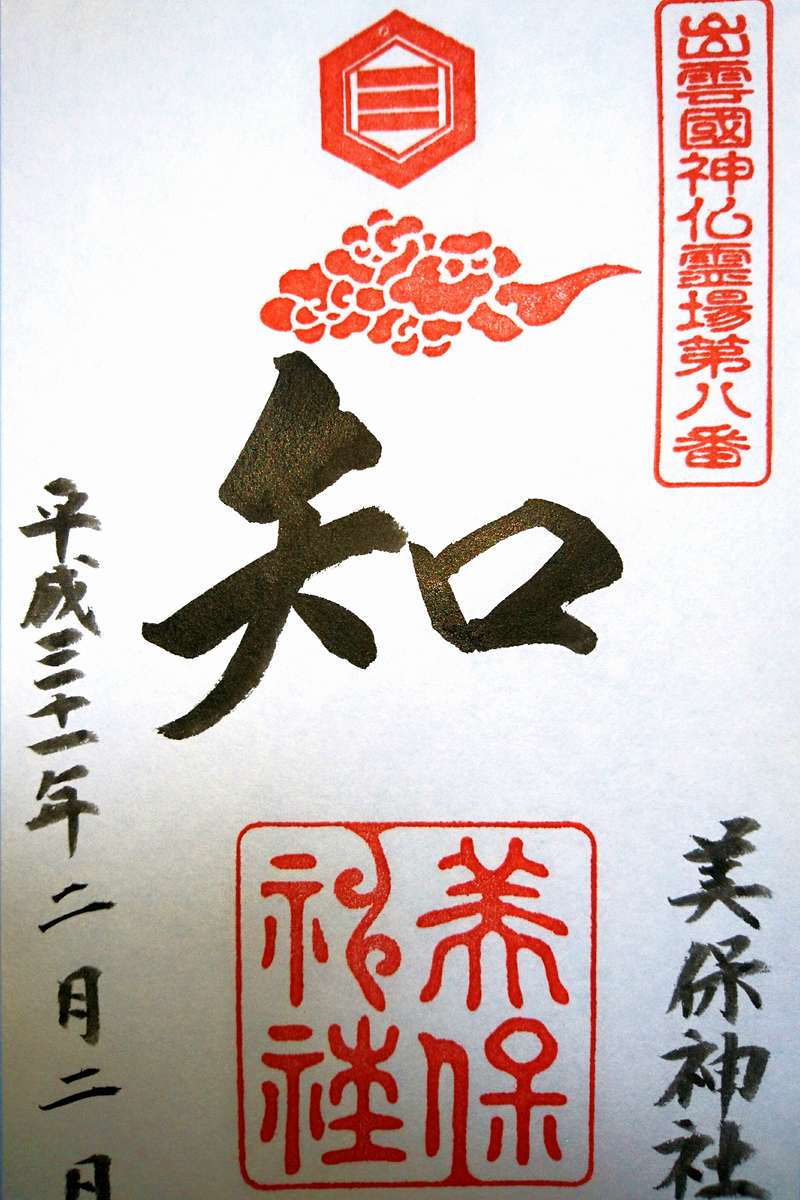 出雲國神仏霊場第八番
美保神社
知
美保
神社
平成三十一年二月二日